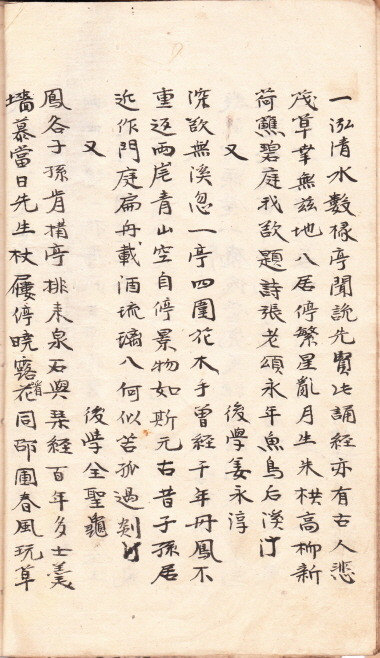 一泓清水數椽亭聞說先賢此誦經亦有古人悲
茂草幸無玆地八居停繁星亂月生朱栱高柳新
荷蘸碧庭我欲題詩張老頌永年魚鳥后溪汀
又　後學姜永淳
深欲無溪忽一亭四圍花木手曾經千年丹鳳不
重返兩岸青山空自停景物如斯元古昔子孫居
近作門庭扁舟載酒琉璃八何似苦孤過剡汀
又　後學全聖龜
鳳谷子孫肯構亭排束泉石與琹經百年多士羹
墻慕當日先生杖屨停曉露花同邵圃春風玩草